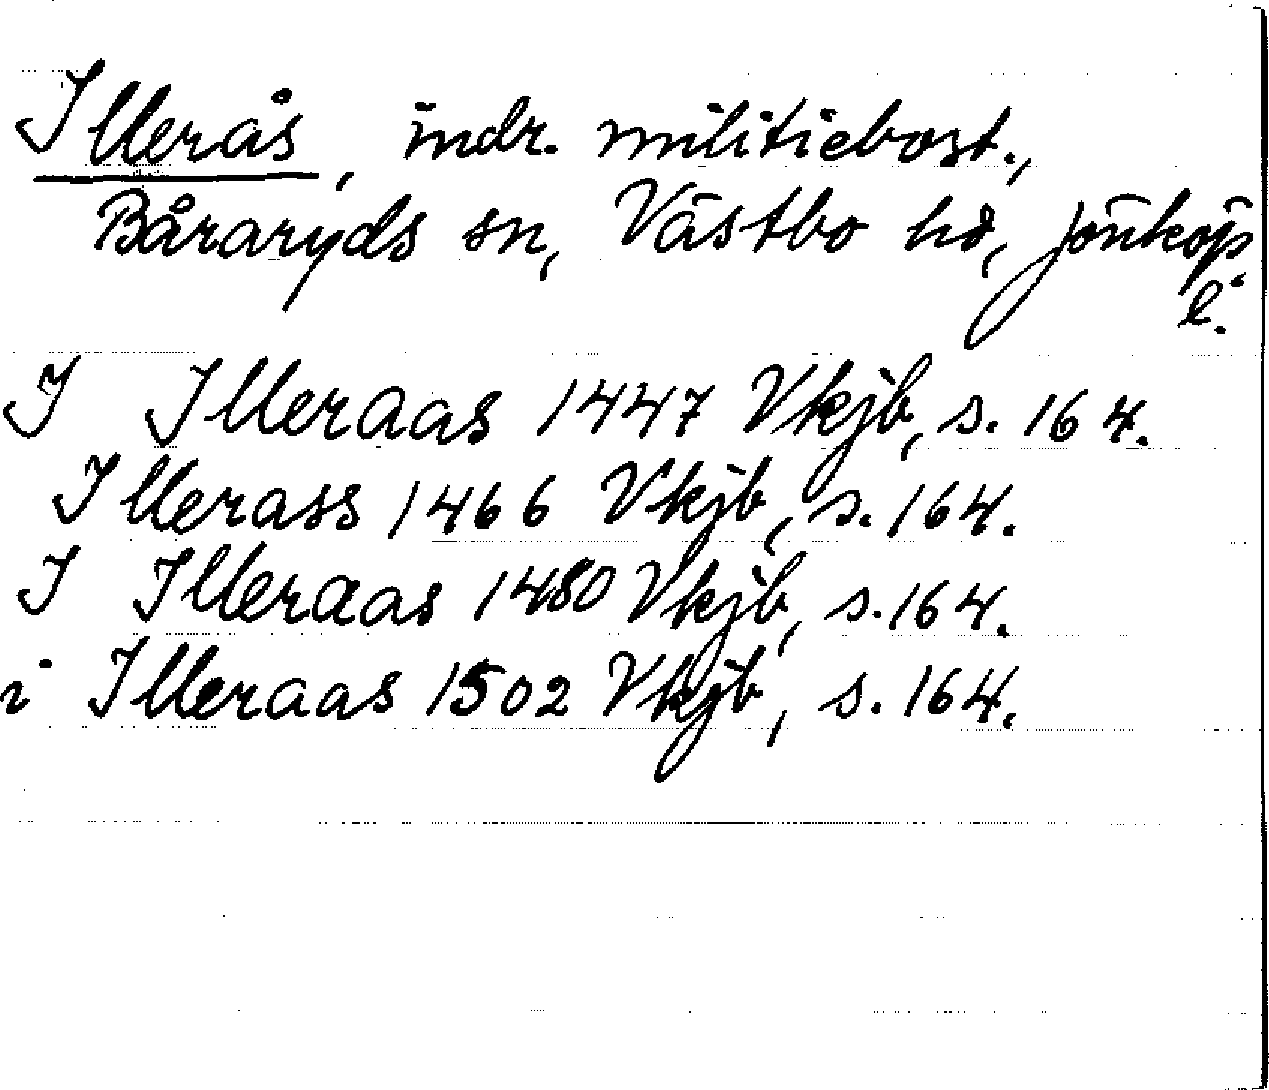 Illerås, indr. militiebost.,
Båraryds sn, Västbo hd, Jönköp.
l.
I Illeraas 1447 Vkjb, s. 164.
Illerass 1466 Vkjb, s. 164.
I Illeraas 1480 Vkjb, s. 164.
i Illeraas 1502 Vkjb, s. 164.